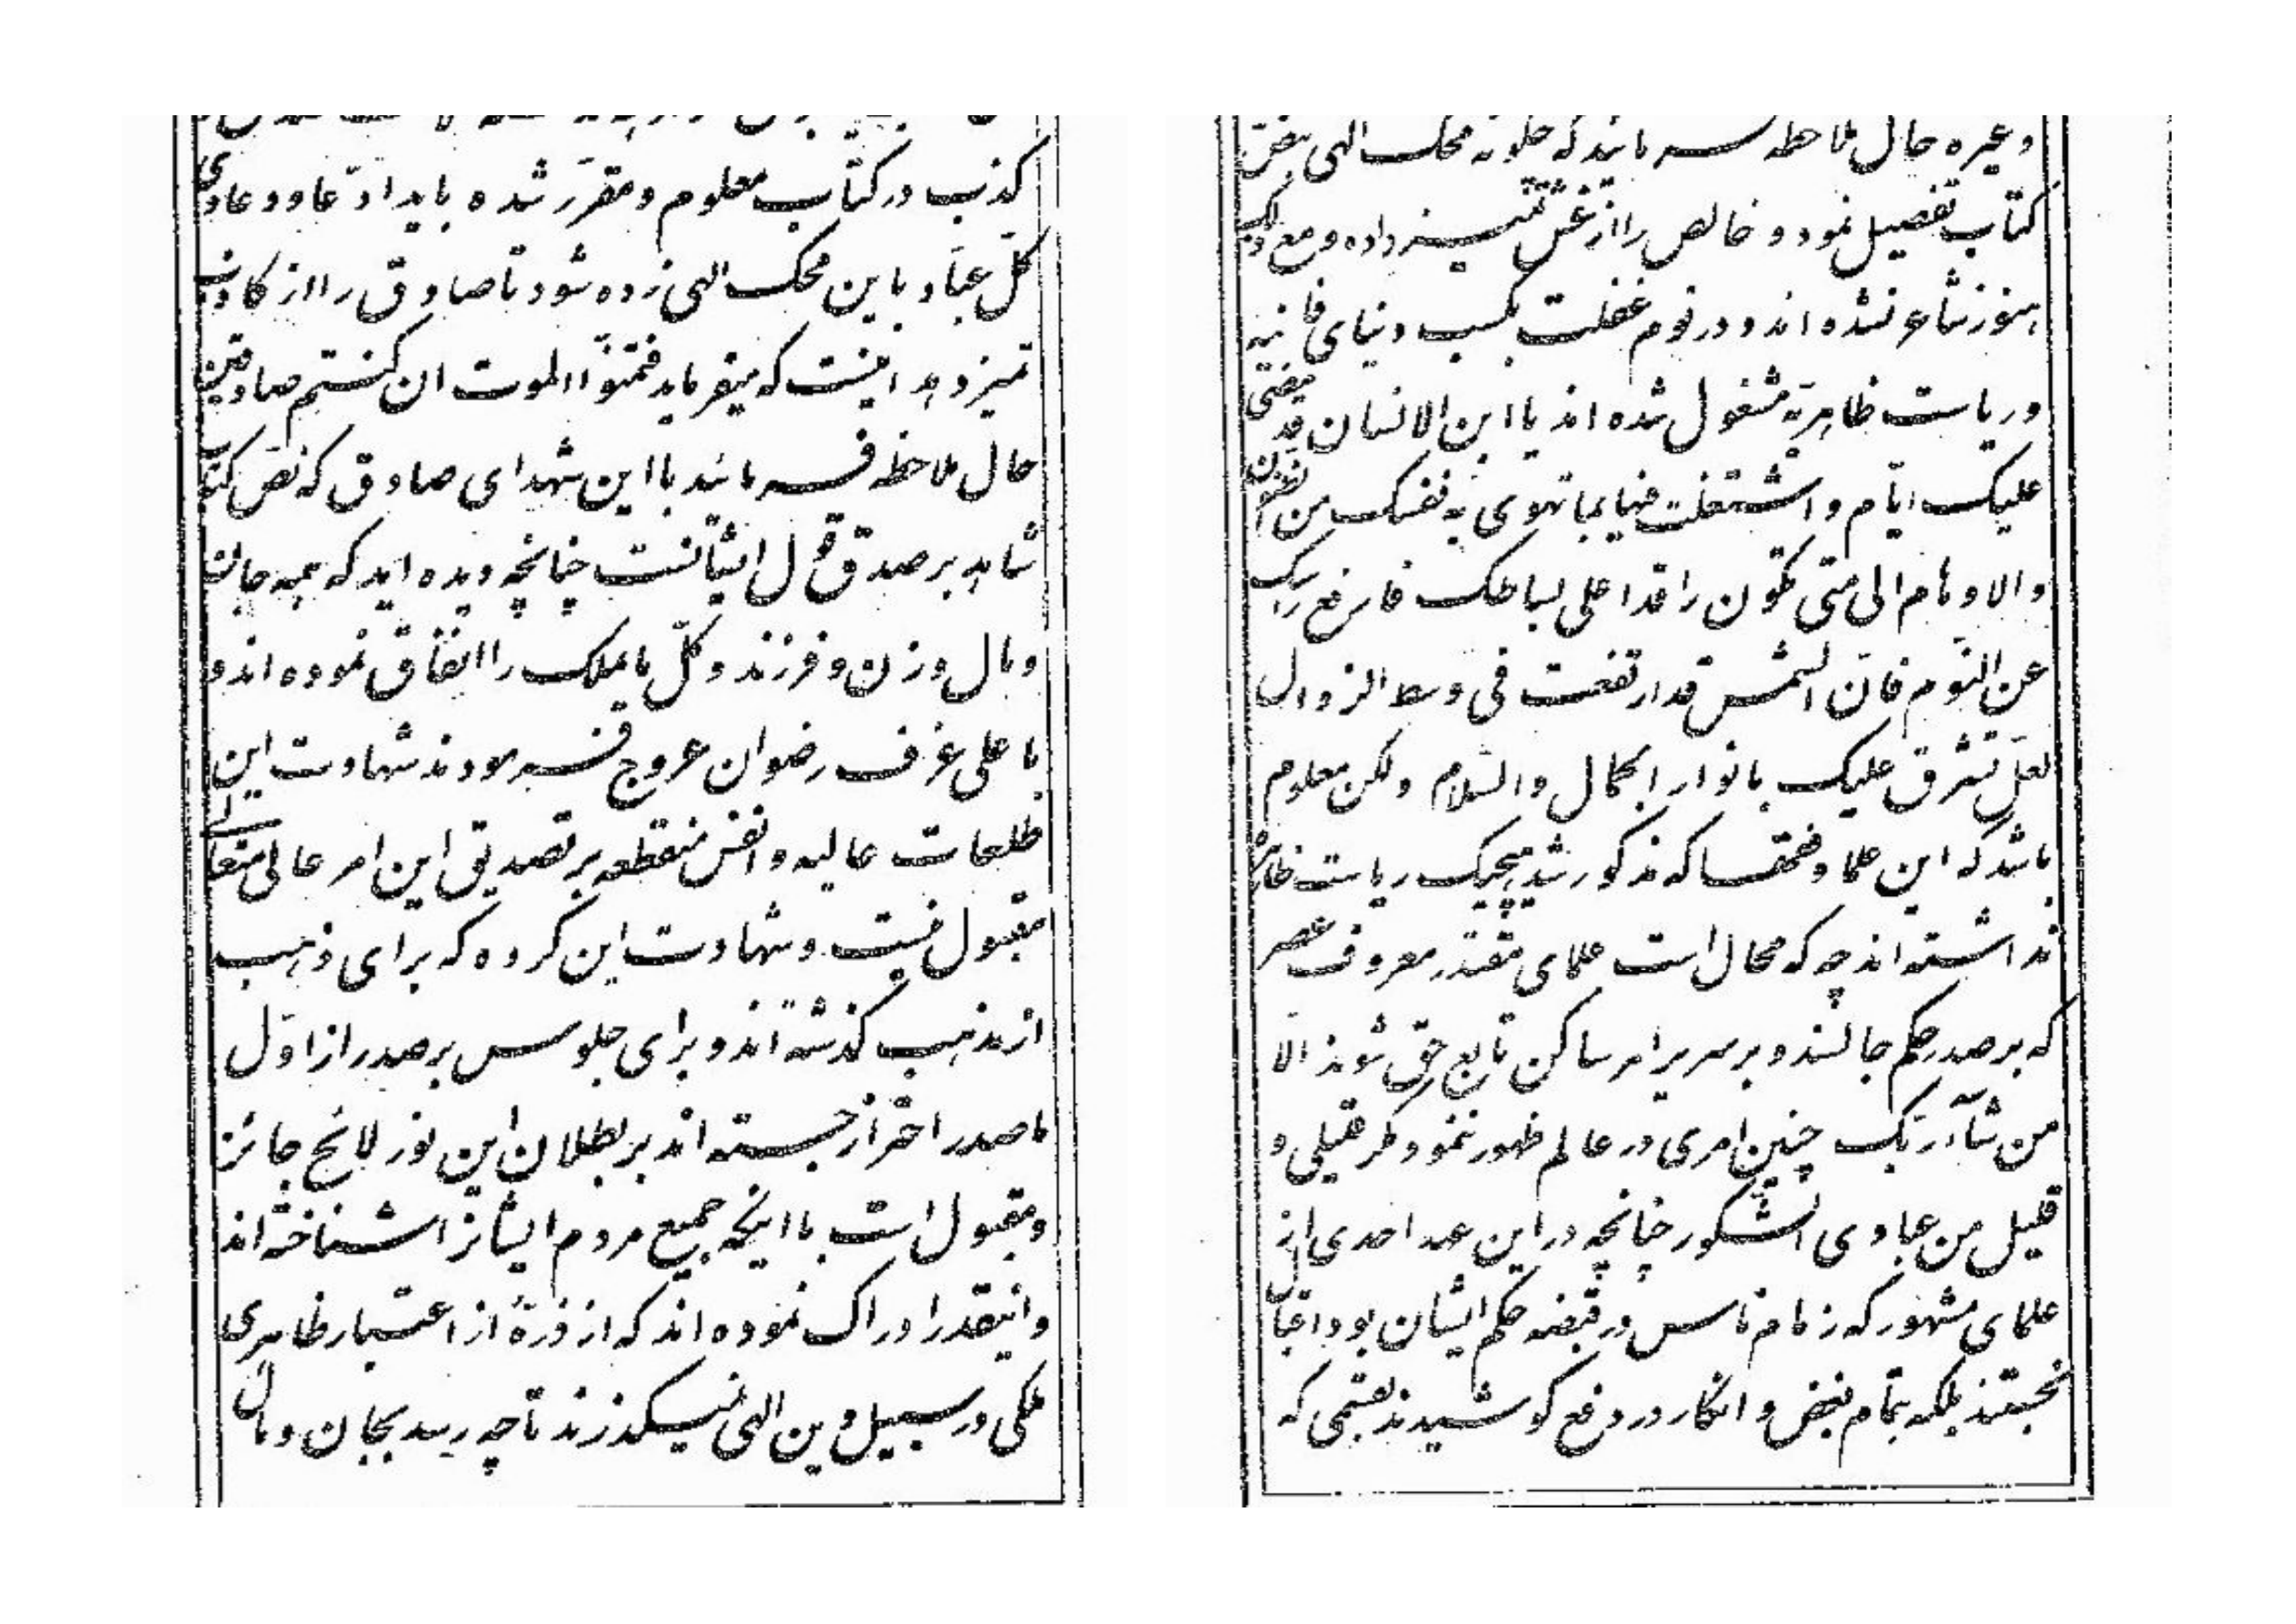 و غیره حال ملاحظه فرمائید که چگونه محک الهی بنصّ
کتاب تفصیل نمود و خالص را از غش تمیز داده و مع ذلک
هنوز شاعر نشده اند و در نوم غفلت بکسب دنیای فانیه
و ریاست ظاهریّه مشغول شده اند یا ابن الانسان قد مضی
علیک ایّام و اشتغلت فیها بما تهوی به نفسک من الظنون
و الاوهام الی متی تکون راقدا علی بساطک فارفع رأسک
عن النّوم فانّ الشّمس قد ارتفعت فی وسط الزوال
لعلّ تشرق علیک بانوار الجمال والسّلام ولکن معلوم
باشد که این علما و فقها که مذکور شد هیچیک ریاست ظاهره
نداشته اند چه که محال است علمای مقتدر معروف عصر
که بر صدر حکم جالسند و بر سریر امر ساکن تابع حقّ شوند الّا
من شآء ربّک چنین امری در عالم ظهور ننمود مگر قلیلی و
قلیل من عبادی الشّکور چنانچه در این عهد احدی از
علمای مشهور که زمام ناس در قبضه حکم ایشان بود اقبال
نجستند بلکه بتمام بغض و انکار در دفع کوشیدند بقسمی که
کذب در کتاب معلوم و مقرّر شده باید ادّعا و دعاوی
کلّ عباد باین محک الهی زده شود تا صادق را از کاذب
تمیز دهد اینست که میفرماید فتمنّوا الموت ان کنتم صادقین
حال ملاحظه فرمائید با این شهدای صادق که نصّ کتاب
شاهد بر صدق قول ایشانست چنانچه دیده اید که همه جان
و مال و زن و فرزند و کلّ مایملک را انفاق نموده اند و
باعلی غرف رضوان عروج فرمودند شهادت این
طلعات عالیه و انفس منقطعه بر تصدیق این امر عالی متعالی
مقبول نیست و شهادت این گروه که برای ذهب
از مذهب گذشته اند و برای جلوس بر صدر از اوّل
ما صدر احتراز جسته اند بر بطلان این نور لائح جائز
و مقبول است با اینکه جمیع مردم ایشانرا شناخته اند
و اینقدر ادراک نموده اند که از ذرّهٔ از اعتبار ظاهری
ملکی در سبیل دین الهی نمیگذرند تا چه رسد بجان و مال